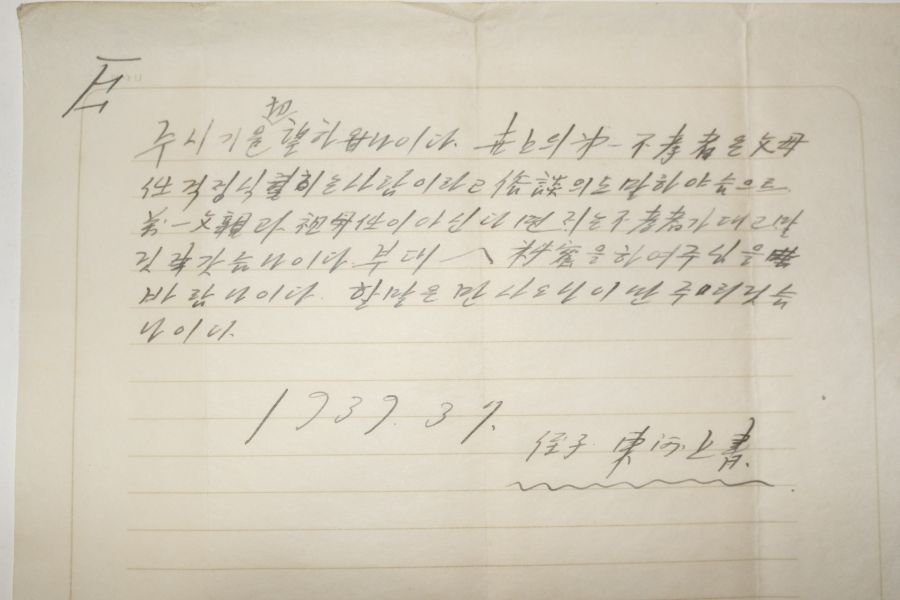 主
切
주시기을 望하나이다. 世上의 第一 不孝者은 父母
任 걱정식히는 사람이라고 俗談의도 말하야슴으로
第一 父親과 祖母任이 아신다면 저는 不孝者가 대고말
것 갓슴니이다. 부대 을하여주심을
바람니이다. 할말은 만사오나 이만 주리것슴
니이다.
1939. 3
侄子 東河 上書